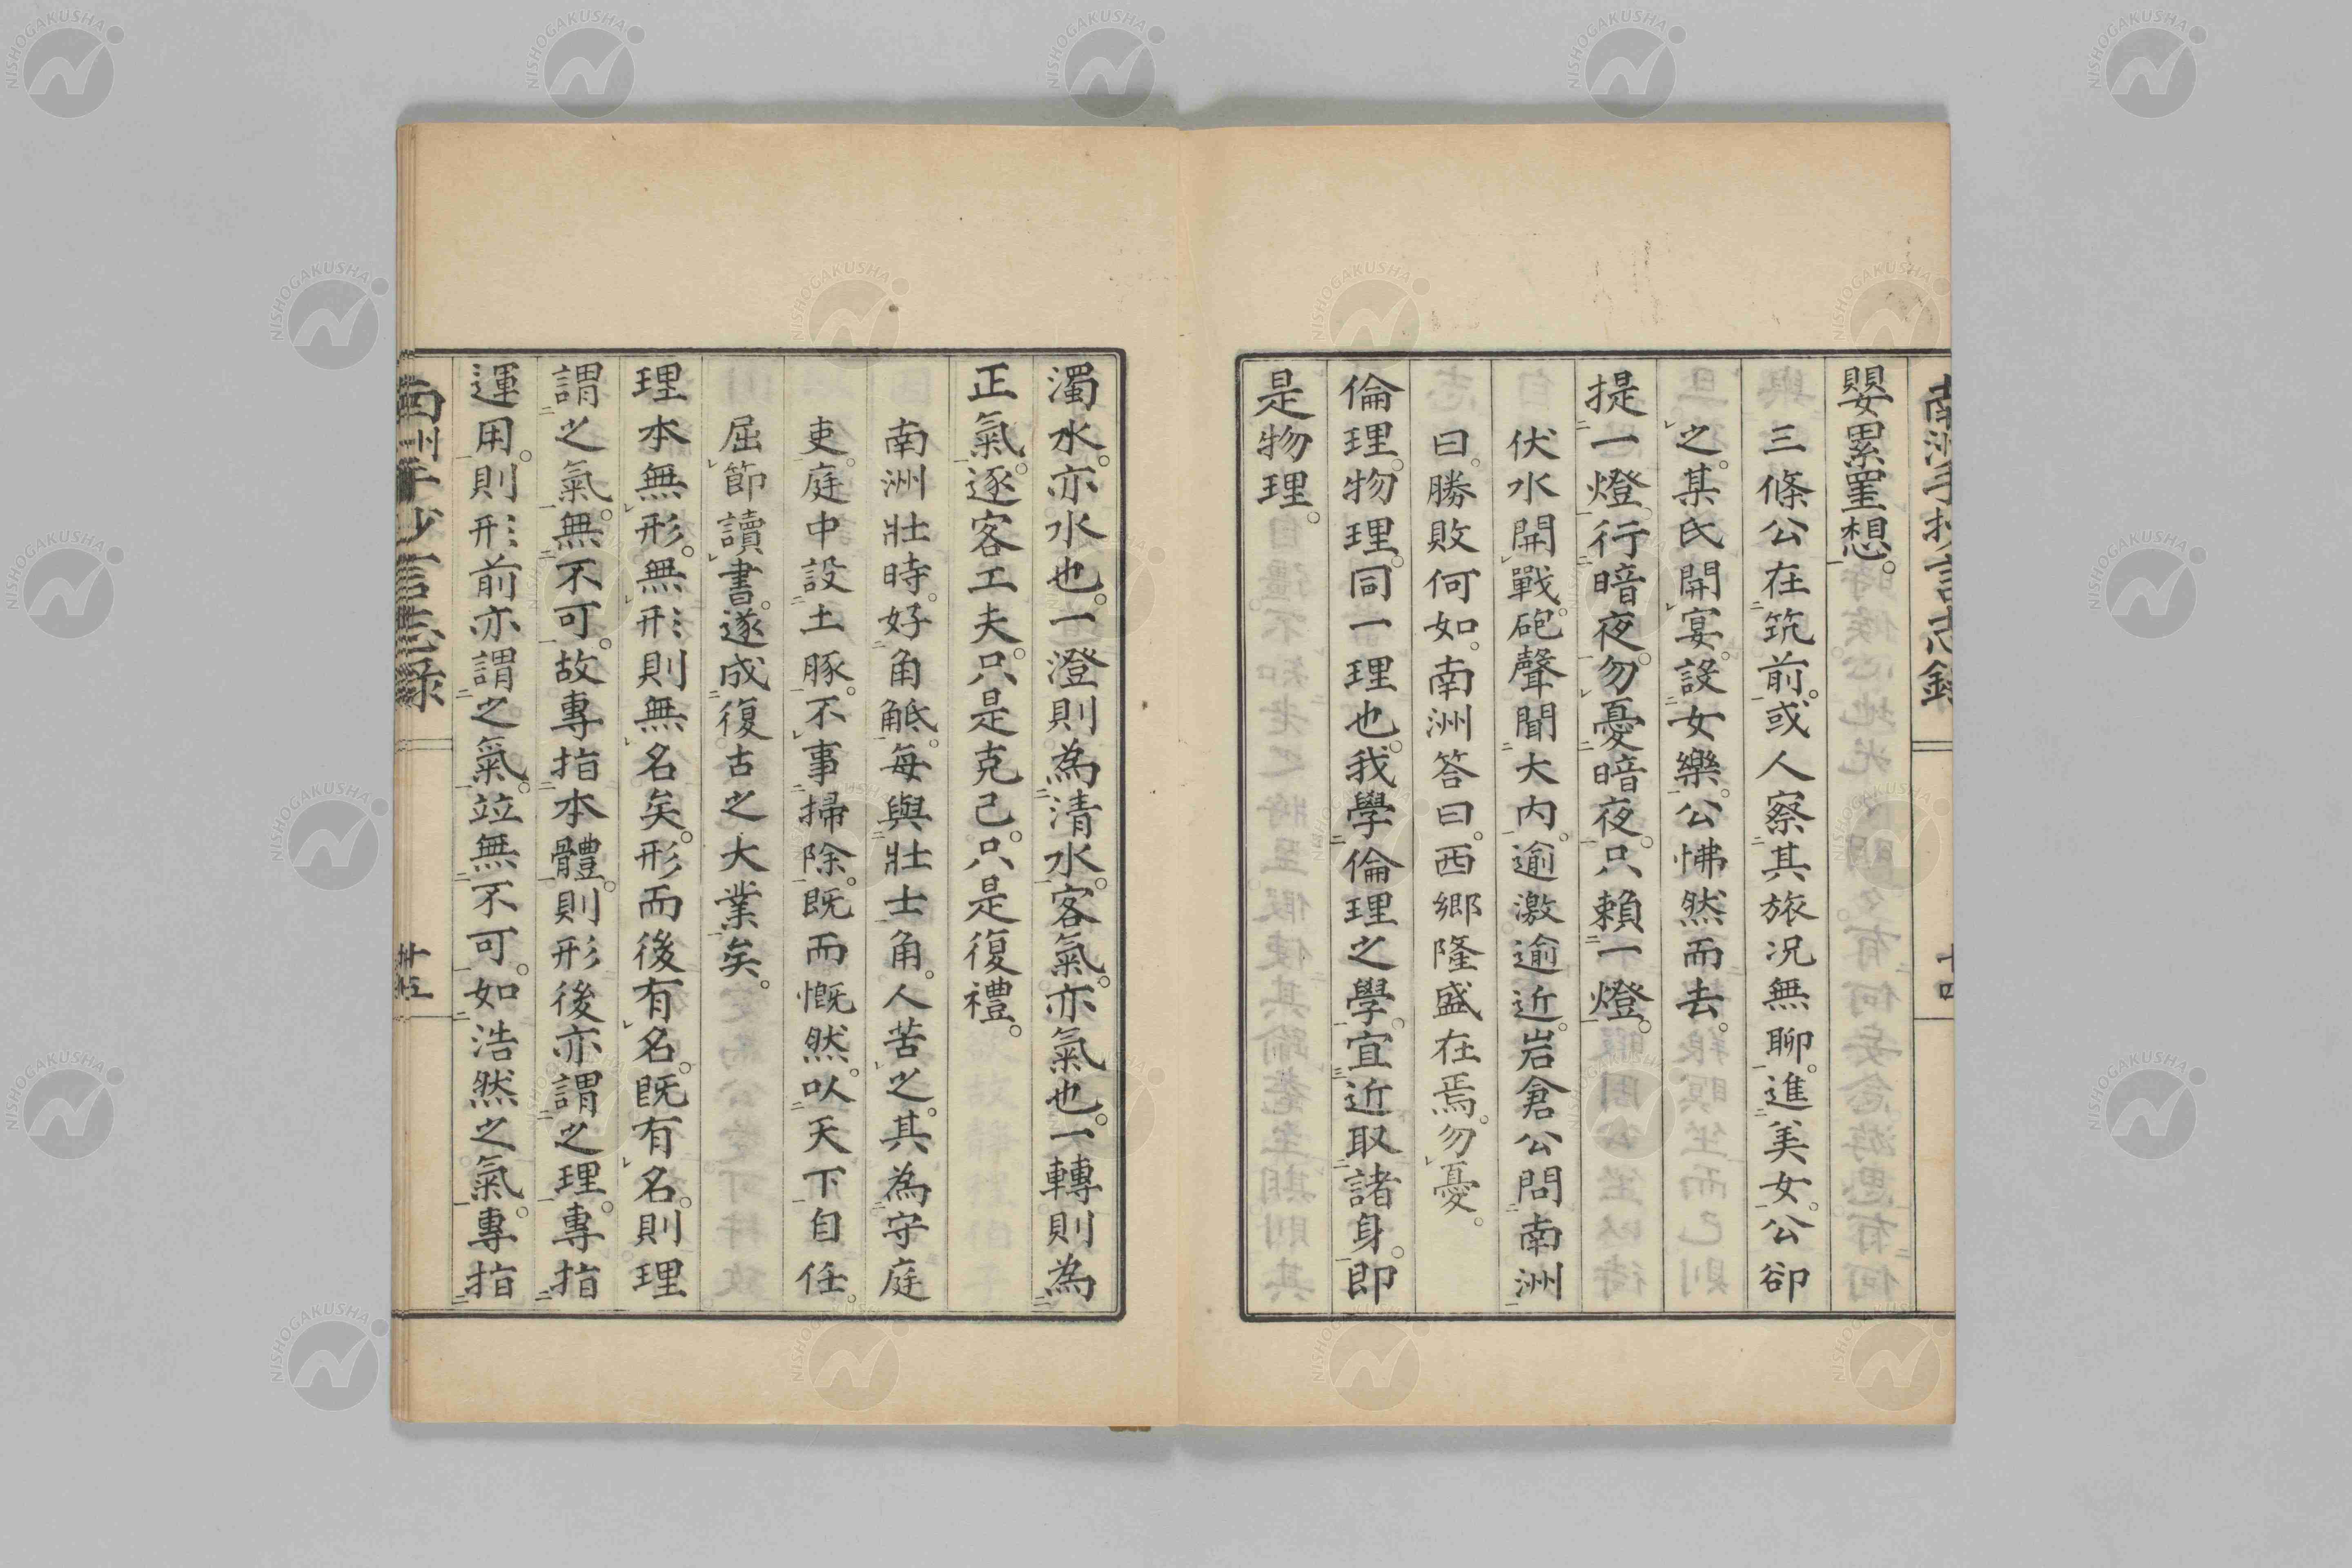 嬰累罣想。
三條公在筑前。或人察其旅況無聊。進美女。公卻
之。某氏開宴。設女樂。公怫然而去。
提一燈。行暗夜。勿憂暗夜。只賴一燈。
伏水開戰。砲聲聞大內。逾激逾近。岩倉公問南洲
曰。勝敗何如。南洲答曰。西鄉隆盛在焉。勿憂。
倫理。物理。同一理也。我學倫理之學。宜近取諸身。即
是物理。
濁水。亦水也。一澄則為清水。客氣。亦氣也。一轉則為
正氣。逐客工夫。只是克己。只是復禮。
南洲壯時。好角觝。每與壯士角。人苦之。其為守庭
吏。庭中設土豚。不事掃除。既而慨然。以天下自任。
屈節讀書。遂成復古之大業矣。
理本無形。無形則無名矣。形而後有名。既有名。則理
謂之氣。無不可。故專指本體。則形後亦謂之理。專指
運用。則形前亦謂之氣。竝無不可。如浩然之氣。專指
廿五
NISHOGAKUSHA
NISHOGAKUSHA
NISHOGAKUSHA
NISHOGAKUSHA
NISHOGAKUSHA
NISHOGAKUSHA
NISHOGAKUSHA
NISHOGAKUSHA
NISHOGAKUSHA
NISHOGAKUSHA
NISHOGAKUSHA
NISHOGAKUSHA
NISHOGAKUSHA
NISHOGAKUSHA